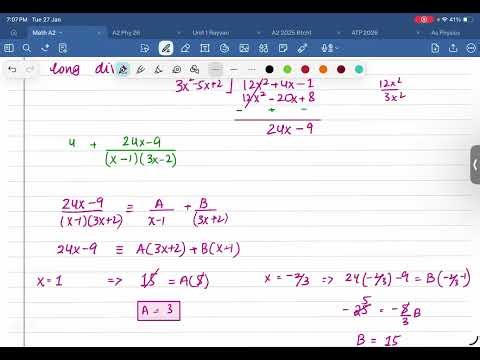 7:07 PM Tue 27 Jan
41%
Math A2 A2 Phy 26 Unit 1 Rayyan A2 2025 Btch1 ATP 2026 As Physics
long di
3x²-5x+2 12x²+4x-1 12x²/3x²
12x²-20x+8
- + -
24x-9
4 + 24x-9/(x-1)(3x-2)
24x-9/(x-1)(3x+2) ≡ A/x-1 + B/(3x+2)
24x-9 ≡ A(3x+2)+B(x-1)
x=1 => 15 = A(5) x = -2/3 => 24(-2/3)-9 = B(-2/3-1)
A = 3 -25 5 = -5/3 B
B = 15